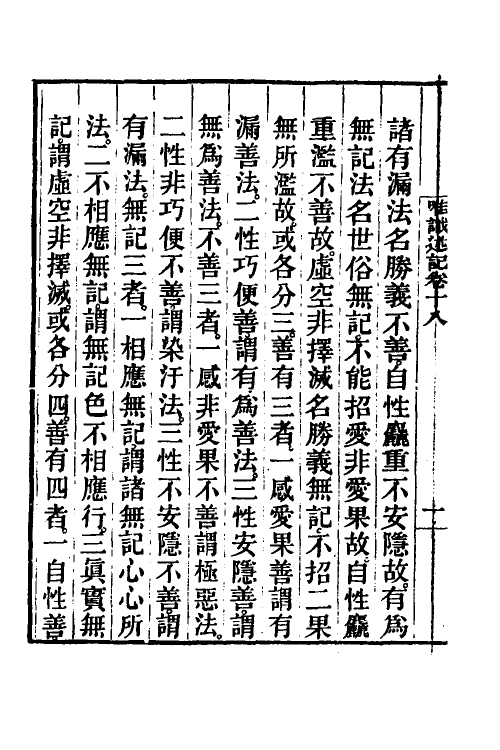 唯識述記卷十八
十一
諸有漏法名勝義不善。自性麤重不安隱故。有爲
無記法名世俗無記。不能招愛非愛果故。自性麤
重濫不善故。虛空非擇滅名勝義無記。不招二果
無所濫故。或各分三。善有三者。一感愛果善謂有
漏善法。二性巧便善謂有爲善法。三性安隱善謂
無爲善法。不善三者。一感非愛果不善謂極惡法。
二性非巧便不善謂染汙法。三性不安隱不善謂
有漏法。無記三者。一相應無記謂諸無記心心所
法。二不相應無記。謂無記色不相應行。三眞實無
記謂虛空非擇滅。或各分四。善有四者。一自性善